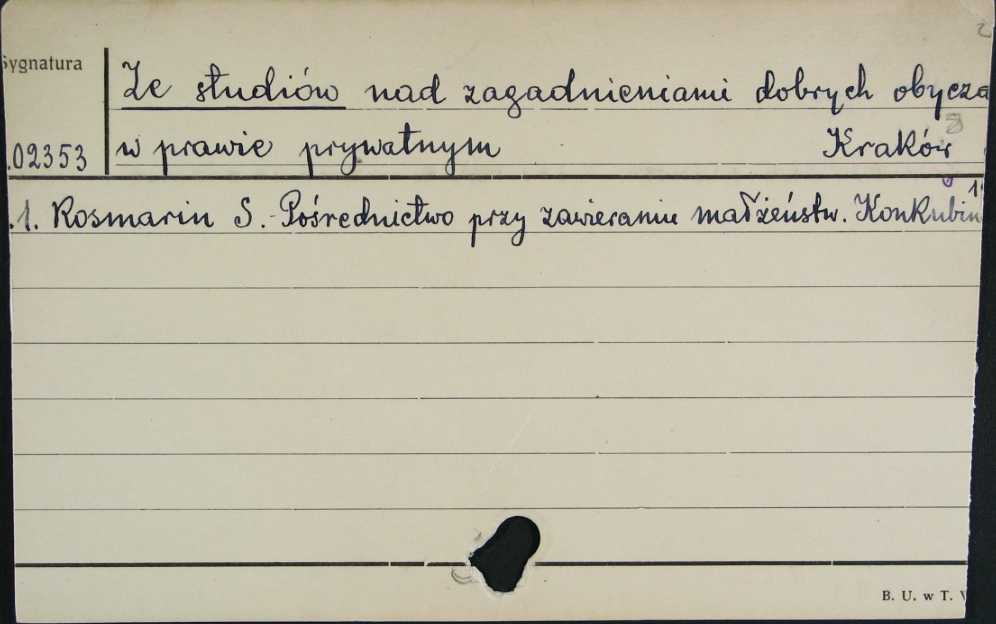 Sygnatura
Ze studiów nad zagadnieniami dobrych obycza
.02353 w prawie prywatnym Kraków
.1. Rosmarin S.- Pośrednictwo przy zawieraniu małżeństw. Konkubin
B. U. w T.